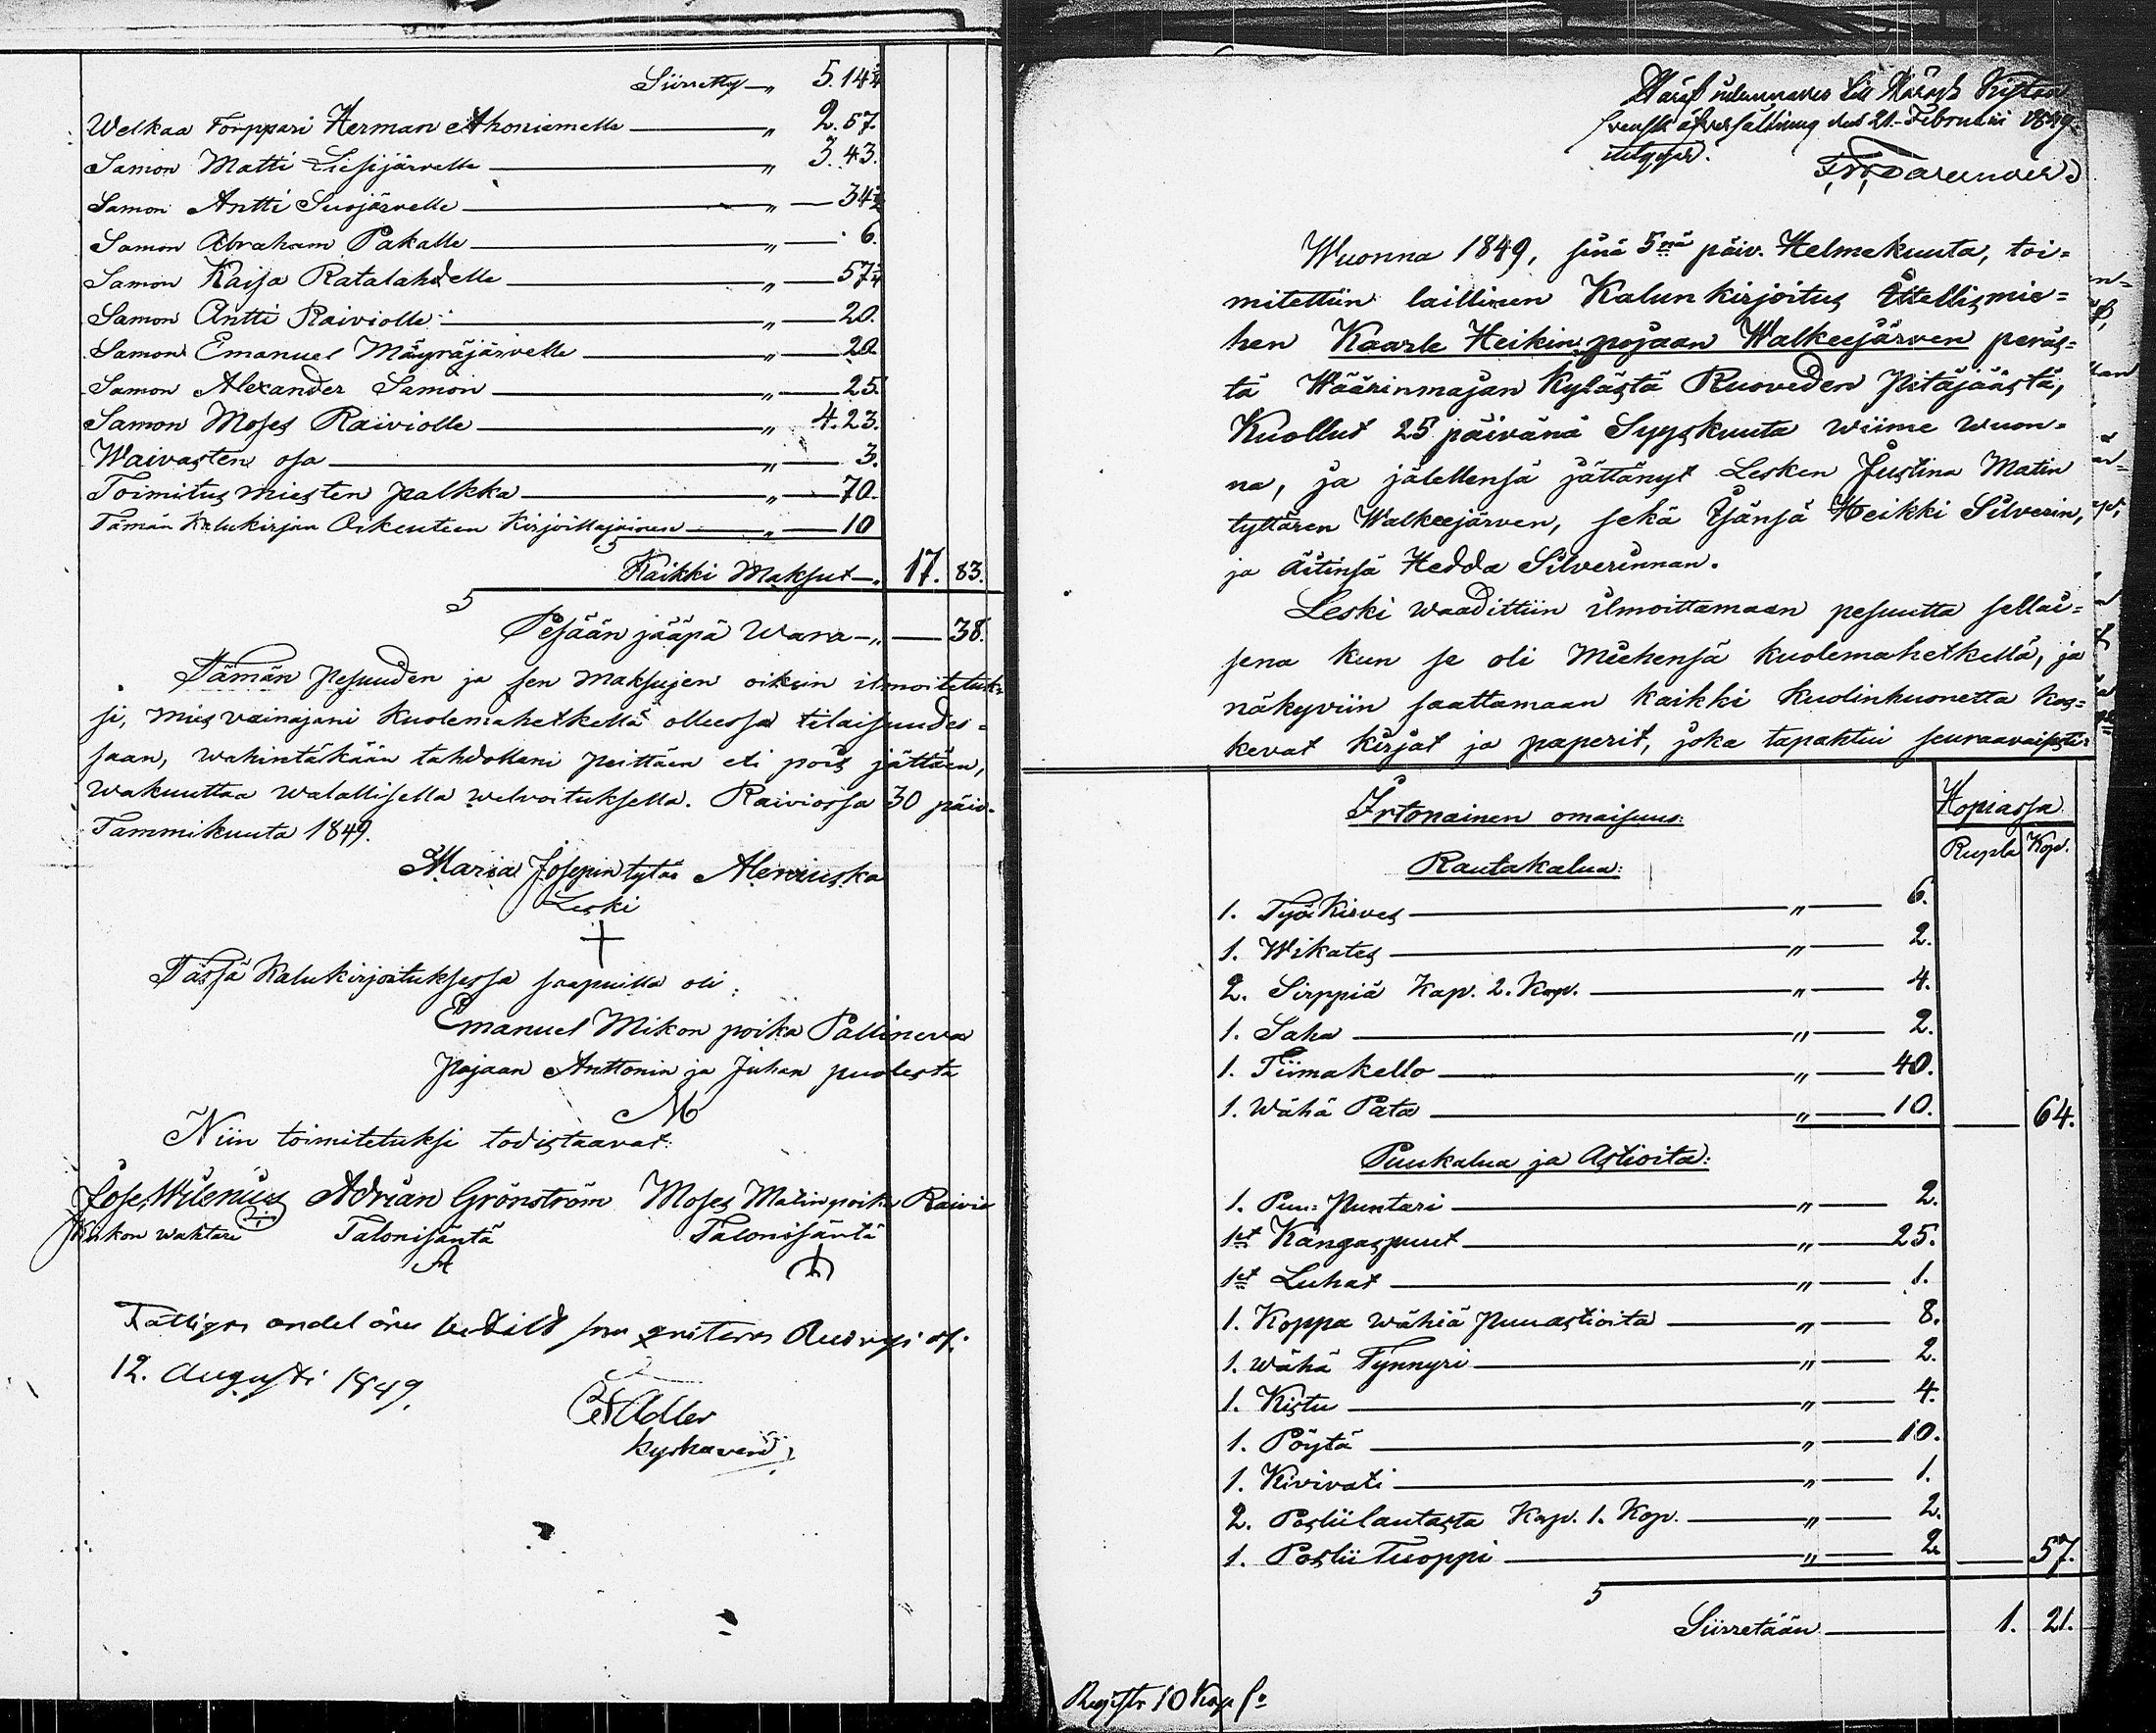 Siirretty — „ 5.14 3/4
Welkaa Torppari Herman Ahoniemelle — „ 2.57.
Samon Matti Liesijärvelle — „ 3.43.
Samon Antti Suojärvelle — „ — 34 2/4
Samon Abraham Pakalle — „ — 6.
Samon Kaisa Ratalahdelle — „ — 57 3/4
Samon Antti Raiviolle — „ — 20.
Samon Emanuel Mäyräjärvelle — „ — 20.
Samon Alexander Samon — „ — 25.
Samon Moses Raiviolle — „ 4.23.
Waivasten osa — „ — 3.
Toimitus miesten palkka — „ — 70.
Tämän Kalukirjan Oikeuteen Kirjoittajainen — „ — 10
Kaikki Maksut — „ 17. 83.
Pesään jääpä Wara — „ — 38.
Tämän pesuuden ja sen maksujen oikein ilmoitetuk=
si, mies vainajani kuolemahetkellä olleessa tilaisuudes=
saan, wahintäkään tahdollani peittäen eli pois jättäen,
wakuuttaa walallisella welvoituksella. Raiviossa 30 päiv.
Tammikuuta 1849.
Maria Josepin tytär
Leski
+
Tässä Kalukirjoituksessa saapuilla oli:
Emanuel Mikon poika Pallineva
Pojaan Anttonin ja Juhan puolesta
M
Niin toimitetuksi todistaavat:
Jose, Wilenius Adrian Grönström Moses Matin poika Raivio
Kirkon wahtari Talonisäntä Talonisäntä
A
Fattiges andel öres betald som qvitteras
12. Augusti 1849.
Adler
kyrkoverd
till
21 Februarii 1849
Wuonna 1849, sinä 5nä päiv. Helmekuuta, toi=
mitettiin laillinen Kalunkirjoitus Ittellismie=
hen Kaarle Heikin pojaan Walkeejärven peräs=
tä Wäärinmajan Kylästä Ruoveden Pitäjäästä,
Kuollut 25 päivänä Syyskuuta wiime wuon=
na, ja jälellensä jättänyt Lesken Justina Matin
tyttären Walkeejärven, sekä Isänsä Heikki Silverin,
ja Äitinsä Hedda Silverinnan.
Leski waadittiin ilmoittamaan pesuutta sellai=
sena kun se oli Miehensä kuolemahetkellä, ja
näkyviin saattamaan kaikki kuolinhuonetta kos=
kevat kirjat ja paperit, joka tapahtui seuraavaisesti:
Irtonainen omaisuus: Hopiassa
Rupla Kop.
Rautakalua:
1. Työ Kirves — „ — 6.
1. Wikates — „ — 2.
2. Sirppiä Kap. 2. Kop. — „ — 4.
1. Saha — „ — 2.
1. Tiimakello — „ — 40.
1. Wähä Pata — „ — 10. — 64.
Puukalua ja Astioita:
1. Puu= Puntari — „ — 2.
1et Kangaspuut — „ — 25.
1et Luhat — „ — 1.
1. Koppa wähiä puuastioita — „ — 8.
1. wähä Tynnyri — „ — 2.
1. Kistu — „ — 4.
1. Pöytä — „ — 10.
1. Kivivati — „ — 1.
2. Posliilautasta Kap. 1. Kop. — „ — 2.
1. Poslii Tuoppi — „ — 2. — 57.
Siirretään — 1. 21.
Registr 10 Kop S.